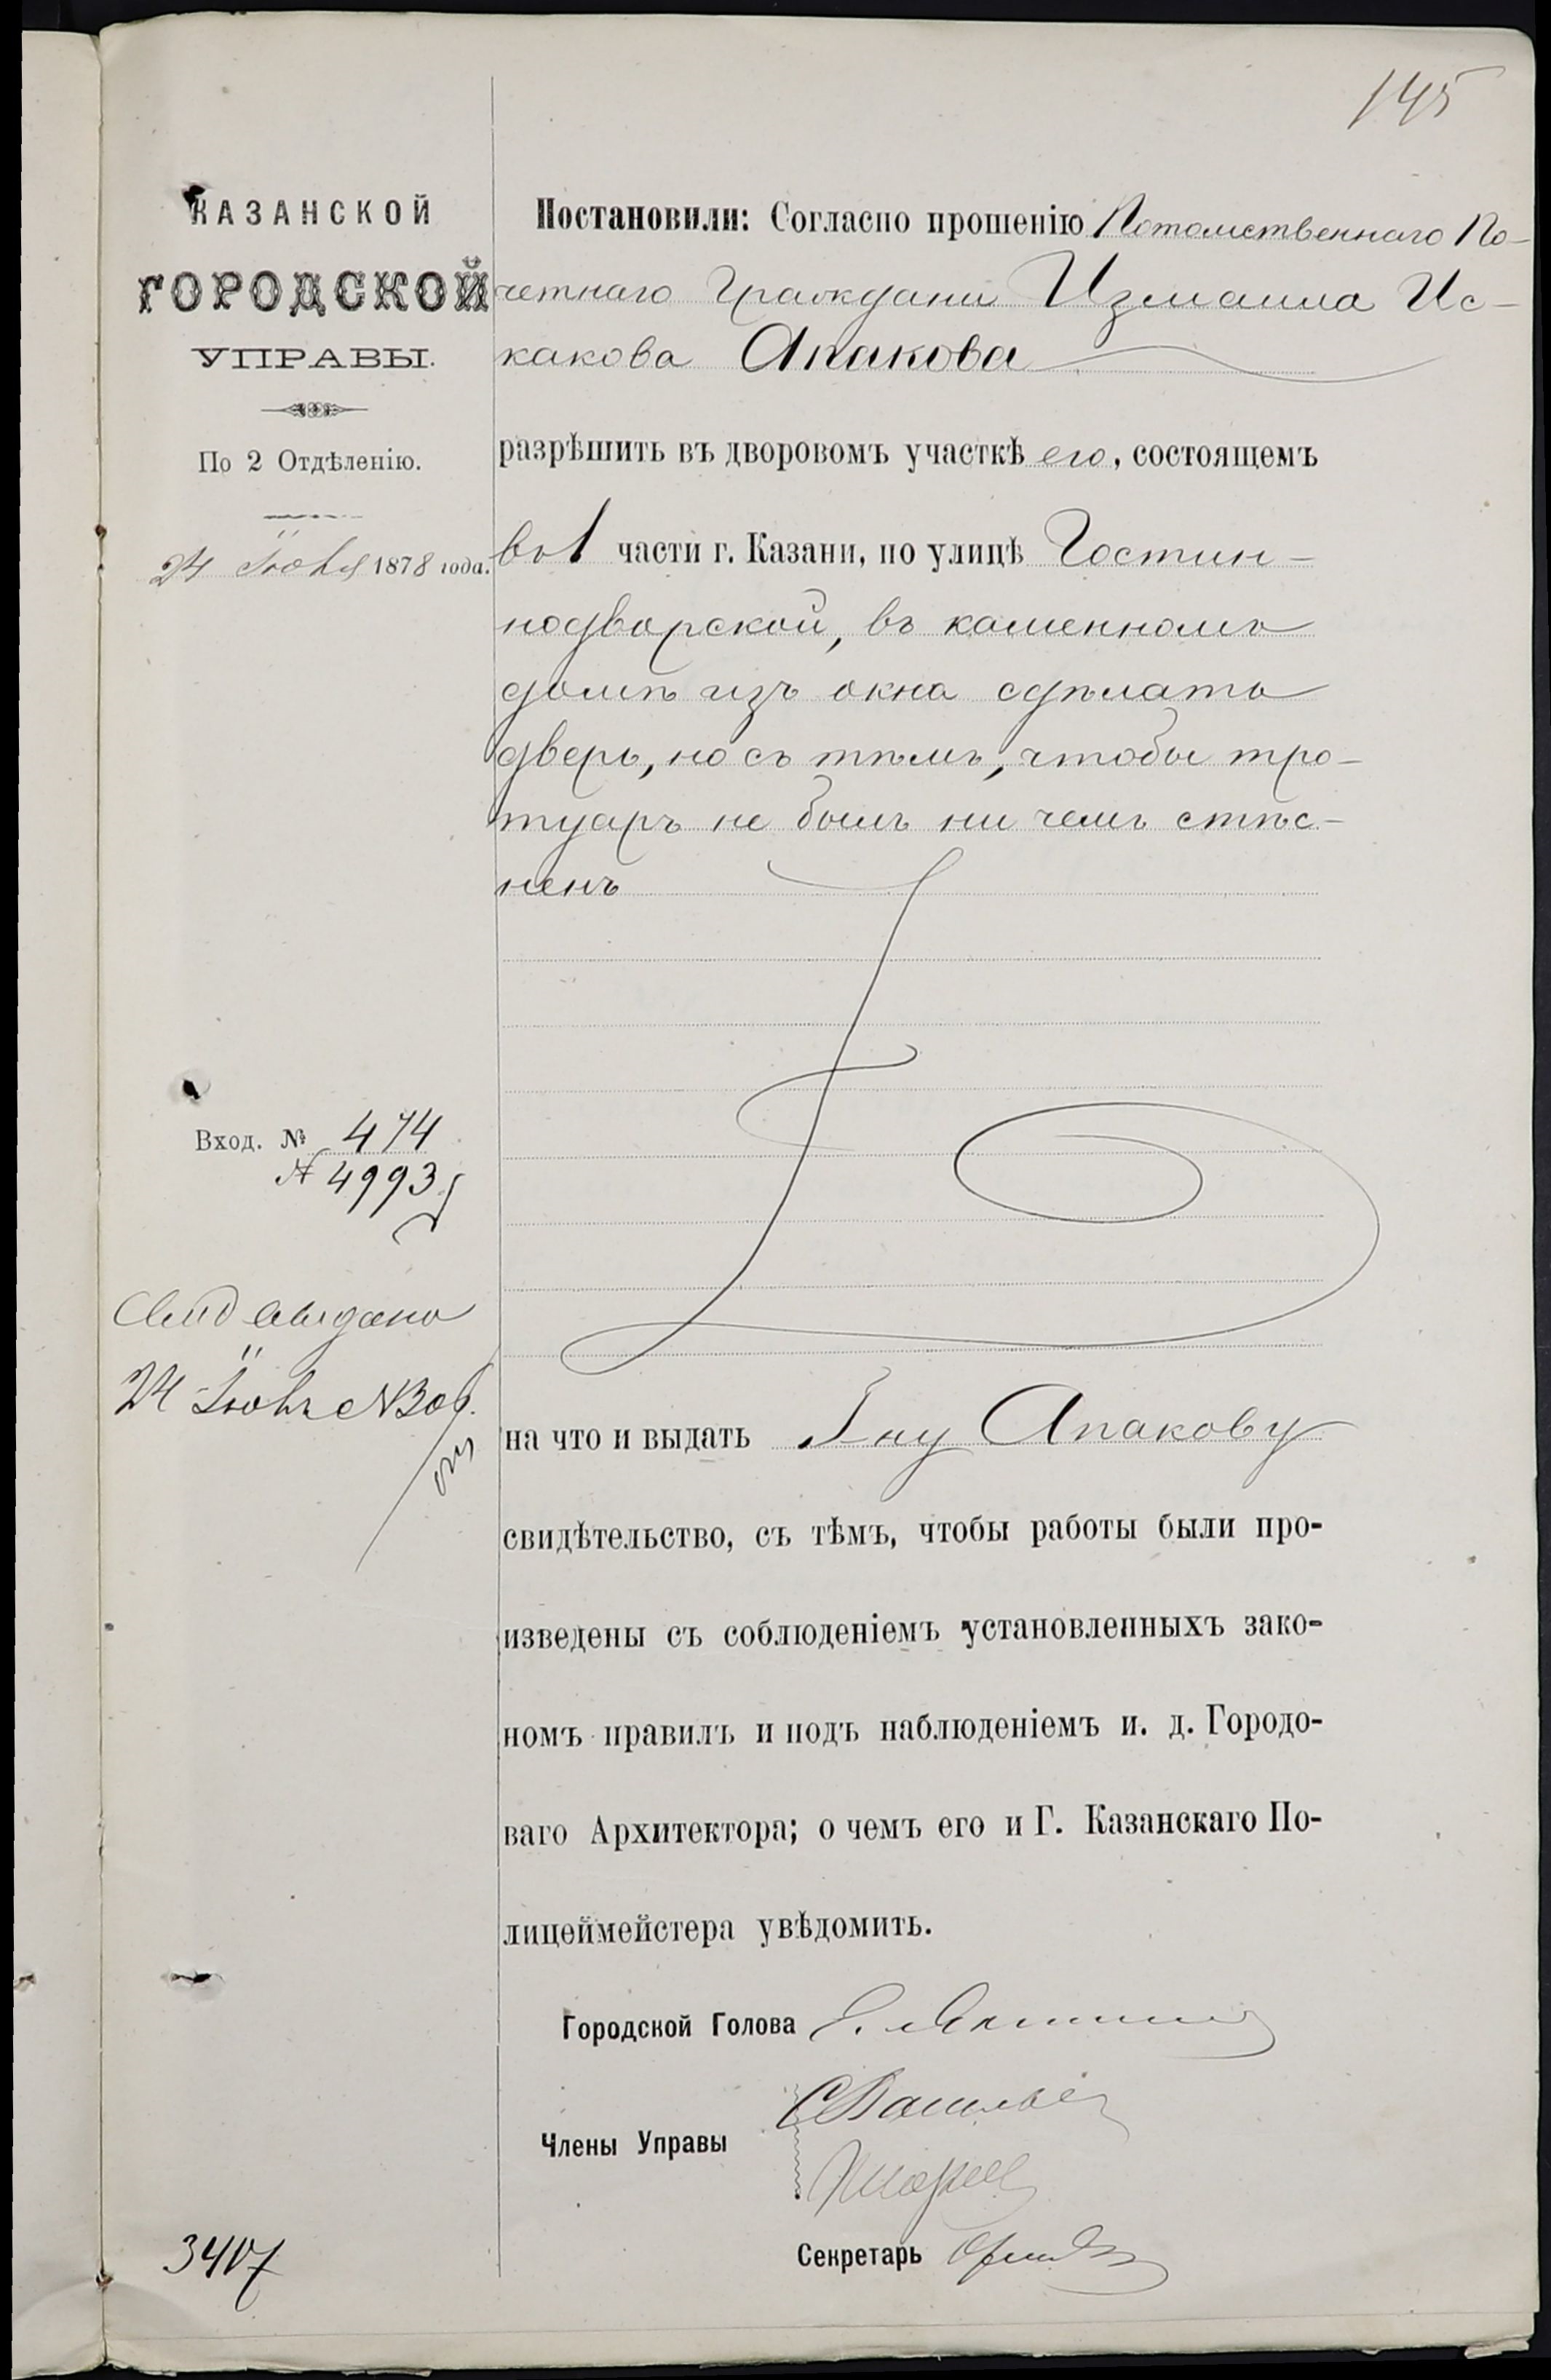 145
КАЗАНСКОЙ
ГОРОДСКОЙ
УПРАВЫ.
По 2 Отдѣленію.
24 Іюня 1878 года.
Постановили: Согласно прошенію Потомственнаго По-
четнаго Граждани Измаила Ис-
какова Апакова
разрѣшить въ дворовомъ участкѣ его, состоящемъ
въ 1 части г. Казани, по улицѣ Гостин-
нодворской, въ каменномъ
домѣ изъ окна сдѣлать
дверь, но съ тѣмъ, чтобы тро-
туаръ не былъ ни чемъ стѣс-
ненъ
Вход. № 474
№ 4993
Свид выдано
24 Іюня №
на что и выдать Г-ну Апакову
свидѣтельство, съ тѣмъ, чтобы работы были про-
изведены съ соблюденіемъ установленныхъ зако-
номъ правилъ и подъ наблюденіемъ и. д. Городо-
ваго Архитектора; о чемъ его и Г. Казанскаго По-
лицеймейстера увѣдомить.
Городской Голова
Члены Управы СВасильев
Секретарь
3407